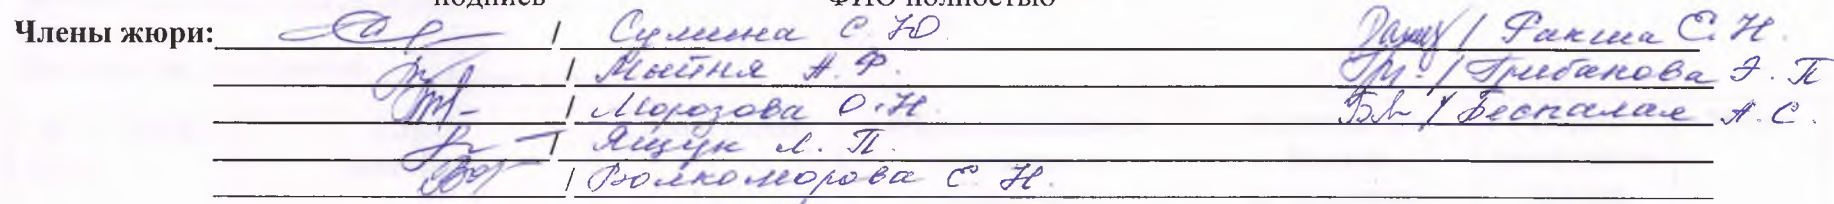 подпись ФИО полностью
Члены жюри: / Сумина С.Ю / Ракша С.Н.
/ Мытня А.Ф. / Грибанова Э.П
/ Морозова О.Н. / Беспалая А.С.
/ Ящук Л.П.
/ Волкоморова Е.Н.